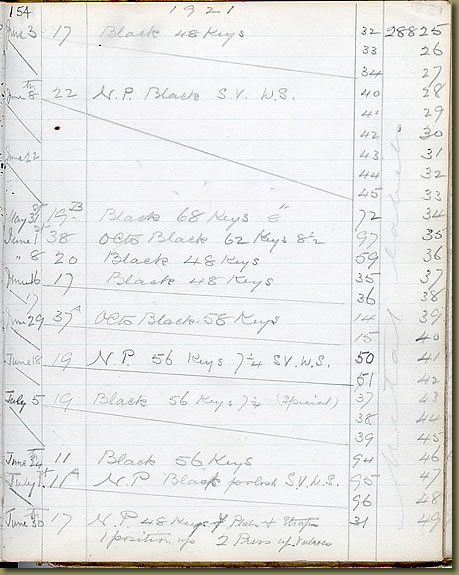 154 1921
June 3 17 Black 48 Keys 32 28825
33 26
34 27
June 8th 22 N.P. Black S.V. W.S. 40 28
41 29
42 30
43 31
June 22 44 32
45 33
May 31st 19B Black 68 Keys 72 34
June 1st 38 Octo Black 62 Keys 8½ 97 35
" 8 20 Black 48 Keys 59 36
June 16 17 Black 48 Keys 35 37
17 36 38
June 29 37A Octo Black 58 Keys 14 39
15 40
June 18 19 N.P. 56 Keys 7¼ S.V. W.S. 50 41
51 42
July 5 19 Black 56 Keys 7¼ (Special) 37 43
38 44
39 45
June 24 11 Black 56 Keys 94 46
July 1st 11A N.P. Black S.V. W.S. 95 47
96 48
June 30 17 N.P. 48 Keys 31 49
1 position up 2 Press up Valves
metal